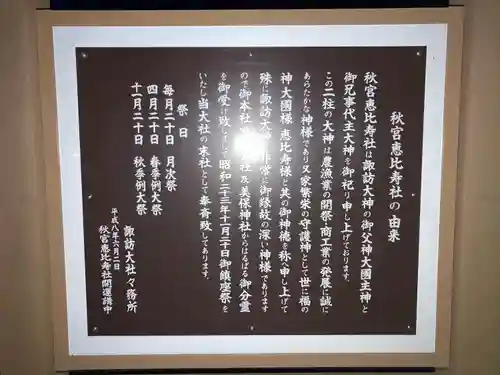 秋宮恵比寿社の由来
秋宮恵比寿社は諏訪大神の御父神大國主神と
御兄事代主大神を御祀り申し上げております。
この二柱の大神は農漁業の開祭・商工業の発展に誠に
あらたかな神様であり又家繁栄の守護神として世に福の
神大國様 恵比寿様と其の御神徳を称へ申し上げて
殊に諏訪大 非常に御縁故の深い神様であります
ので御本社 社及美保神社からはるばる御分霊
を御受け致しまして昭和二十三年十一月二十日御鎮座祭を
いたし当大社の末社として奉斎致してあります。
祭日
毎月二十日 月次祭
四月二十日 春季例大祭
十一月二十日 秋季例大祭
諏訪大社々務所
平成八年六月二日
秋宮恵比寿社開運講中